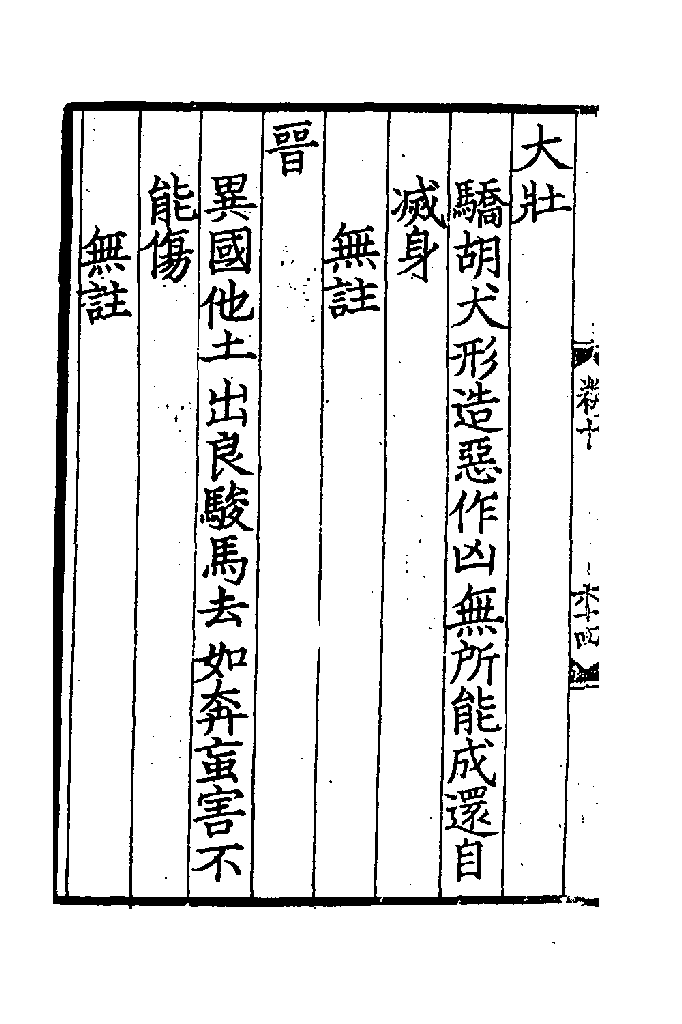 大壯
驕胡犬形造惡作凶無所能成還自
滅身
無註
晉
異國他土出良駿馬去如奔䖟害不
能傷
無註